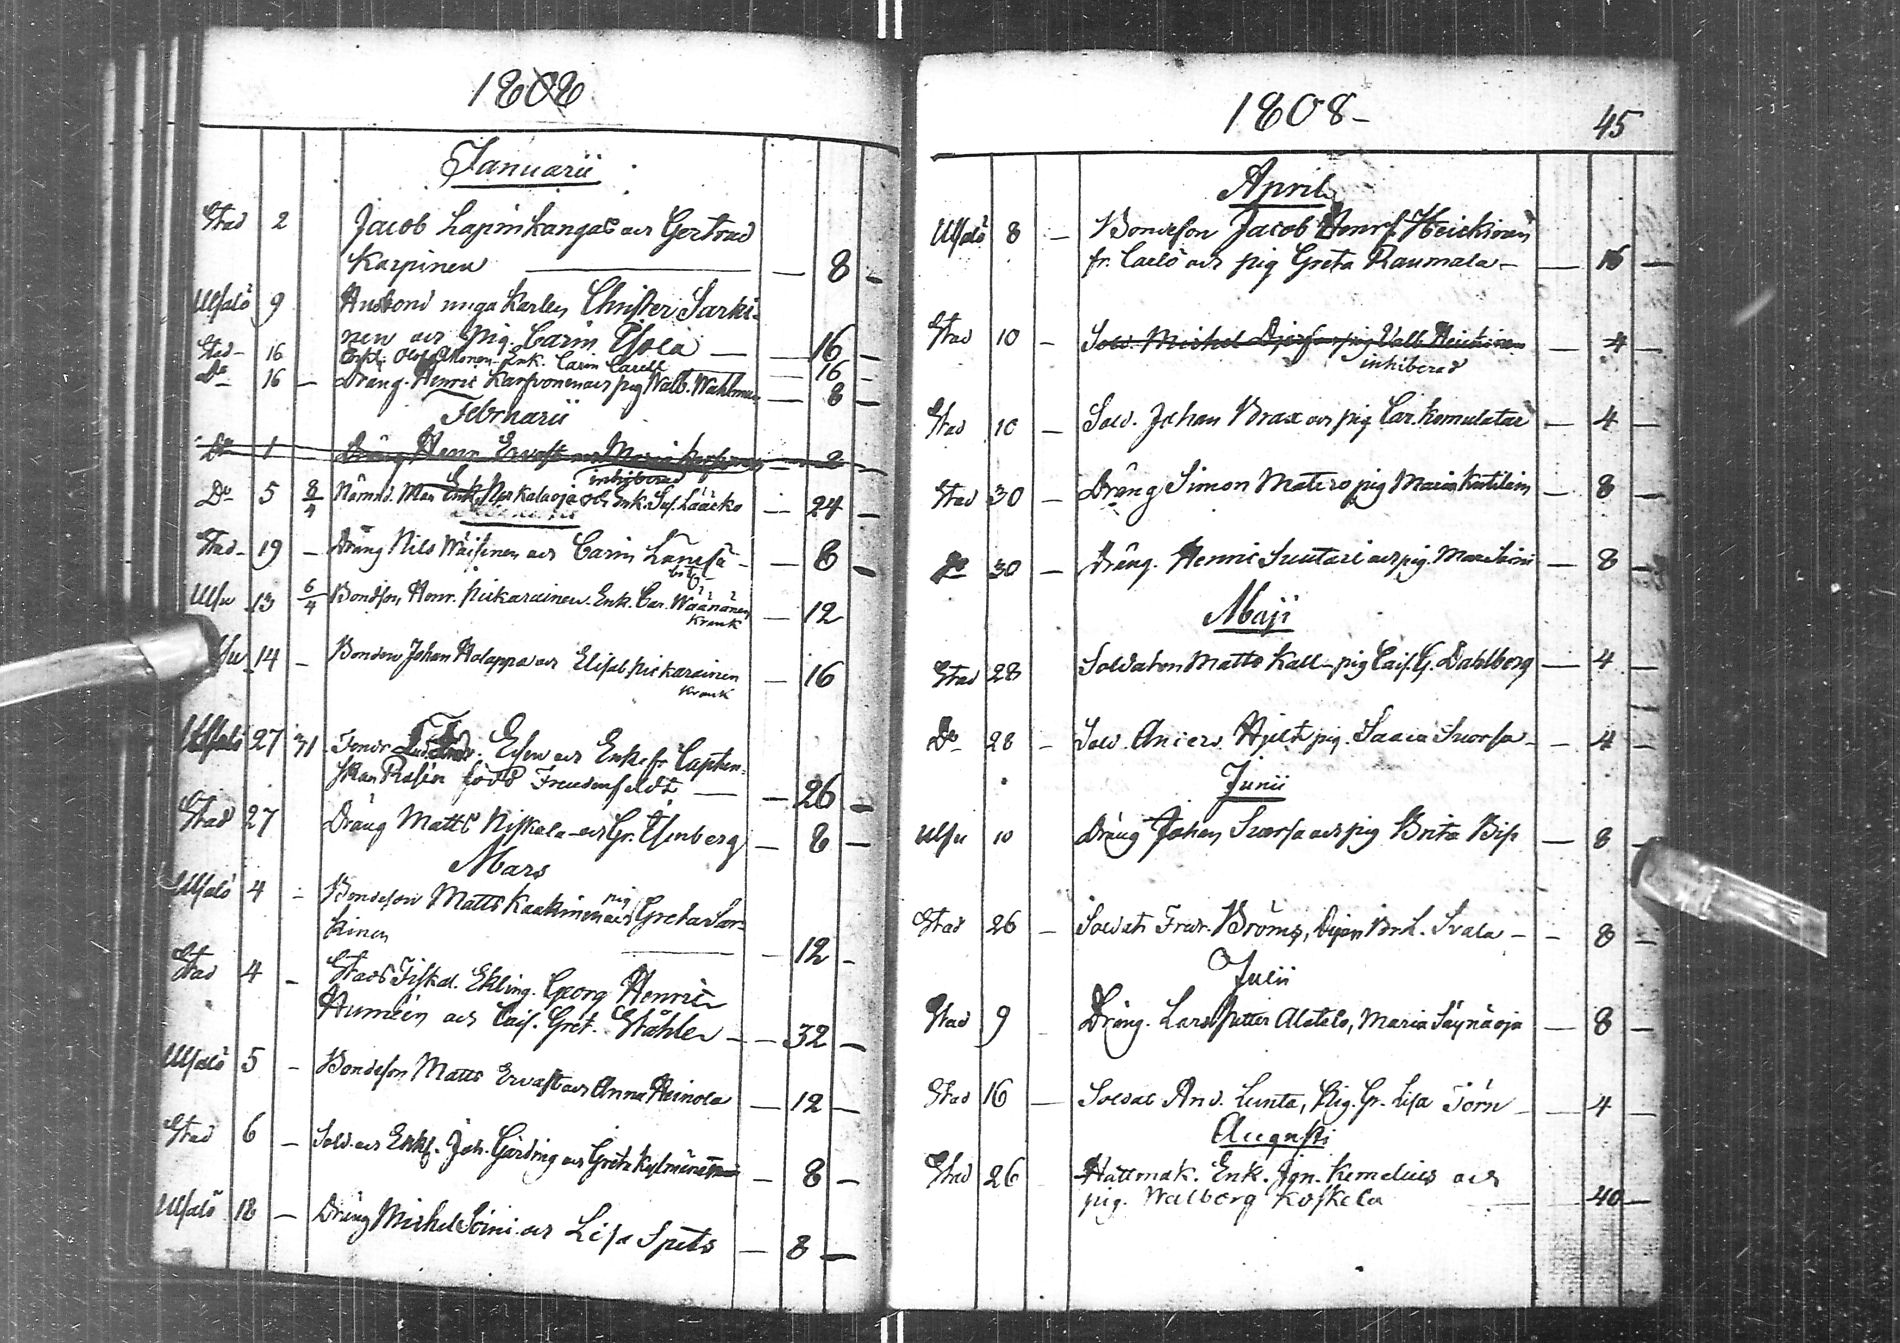 1808
Januarii
Stad 2 Jacob Lapinkangas och Gertrud
Karpinen — 8 -
Ulfalö 9 Husbond unga karlen Christer Sarki-
nen och pig. Carin Ysola — 16 -
Stad - 16 Enkl. Olof Enk. Carin — 16 -
Do 16 - Dräng. Henric Karpvonen och pig Walb. — 8 -
Februarii
Do 1 Dräng Henr Ervast och Maria — 8
inhiberad
Do 5 8/4 Nämnd. Man Enk. Niskalaoja och Enk. Lisa Lääcko — 24 -
Stad - 19 - Dräng Nils Wäisinen och Carin Länsä - — 8 -
Ulfu 13 6/4 Bondeson, Henr. Pickarainen. Enk. Car. Wäänänen — 12
krank
14 - Bonden Johan Halappa och Elisab. Pickarainen — 16
krank
Ulfalö 27 31 Fendr. Elfen och Enkefr. Capten-
skan Rosin född Freudenfeldt — 26 -
Stad 27 Dräng Matts Niskala och Gr. Isenberg — 8 -
Mars
Ulfalö 4 - Bondeson Matts Kaakinen och pig Greta Sar-
kinen — 12 -
Stad 4 - Stads Fiskal. Ekling. Georg Henric
Humlin och Caif. Gret. Ståhler — 32 -
Ulfalö 5 - Bondeson Matts Ervast och Anna Heinola — 12 -
Stad 6 - Sold. och Enkl. Joh. Gärding och Greta — 8 -
Ulfalö 18 - Dräng Michel Soini och Lisa Spets — 8 -
1808 - 45
April
Ulfalö 8 - Bondeson Jacob Henrs. Heickinen
fr. Carlö och pig Greta Raumala — 16 -
Stad 10 - Sold. Michel pig Valb. Heickinen — 4 -
inhiberad
Stad 10 - Sold. Johan Brax och pig Car. — 4 -
Stad 30 - Dräng. Simon Matero pig Maria — 8 -
Do 30 - Dräng. Henric Suutari och pig. — 8 -
Maji
Stad 28 Soldaten Matts Kall - pig Caif. G. Dahlberg — 4 -
Do 28 - Sold. Anders Hjelt pig. Saara Suorsa — 4 -
Junii
Ulfu 10 Dräng Johan Suorsa och pig Brita — 8 -
Stad 26 - Soldat. Fredr. Bröms, Brl. Svala — 8 -
Julii
Stad 9 - Dräng. Lars Petter Alatalo, Maria Säynäoja — 8 -
Stad 16 - Soldat And. Lunta, Pig. Gr. Lisa Törn — 4 -
Augusti
Stad 26 Hattmak. Enk. Jon. Kemelius och
pig. Walborg Koskela — 40 -